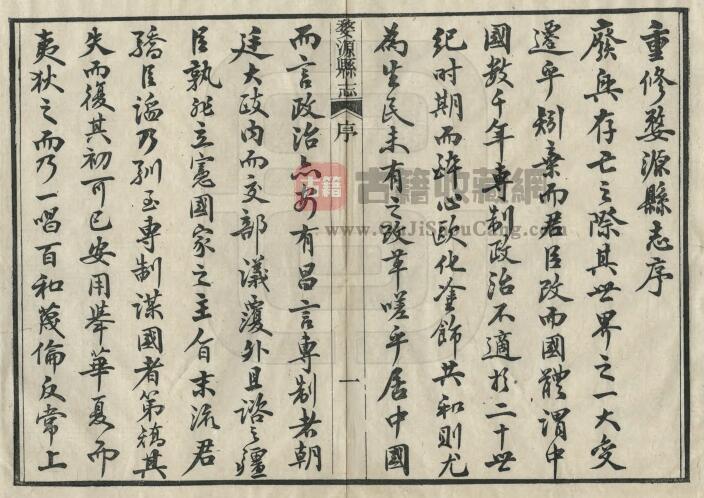 重修婺源縣志序
廢興存亡之際其世界之一大變
遷乎矧棄而君臣改而國體謂中
國數千年專制政治不適於二十世
紀时期而醉心歐化塗飾共和則尤
為生民未有之改革嗟乎居中國
婺源縣志 序 一
而言政治亦安有昌言專制者朝
廷大政內而交部議覆外且諮之疆
臣孰非立憲國家之主旨末流君
驕臣謟乃馴至專制謀國者第矯其
失而復其初可已安用舉華夏而
夷狄之而乃一唱百和蔑倫反常上
古籍 古籍收藏網
www.GuJiShouCang.com